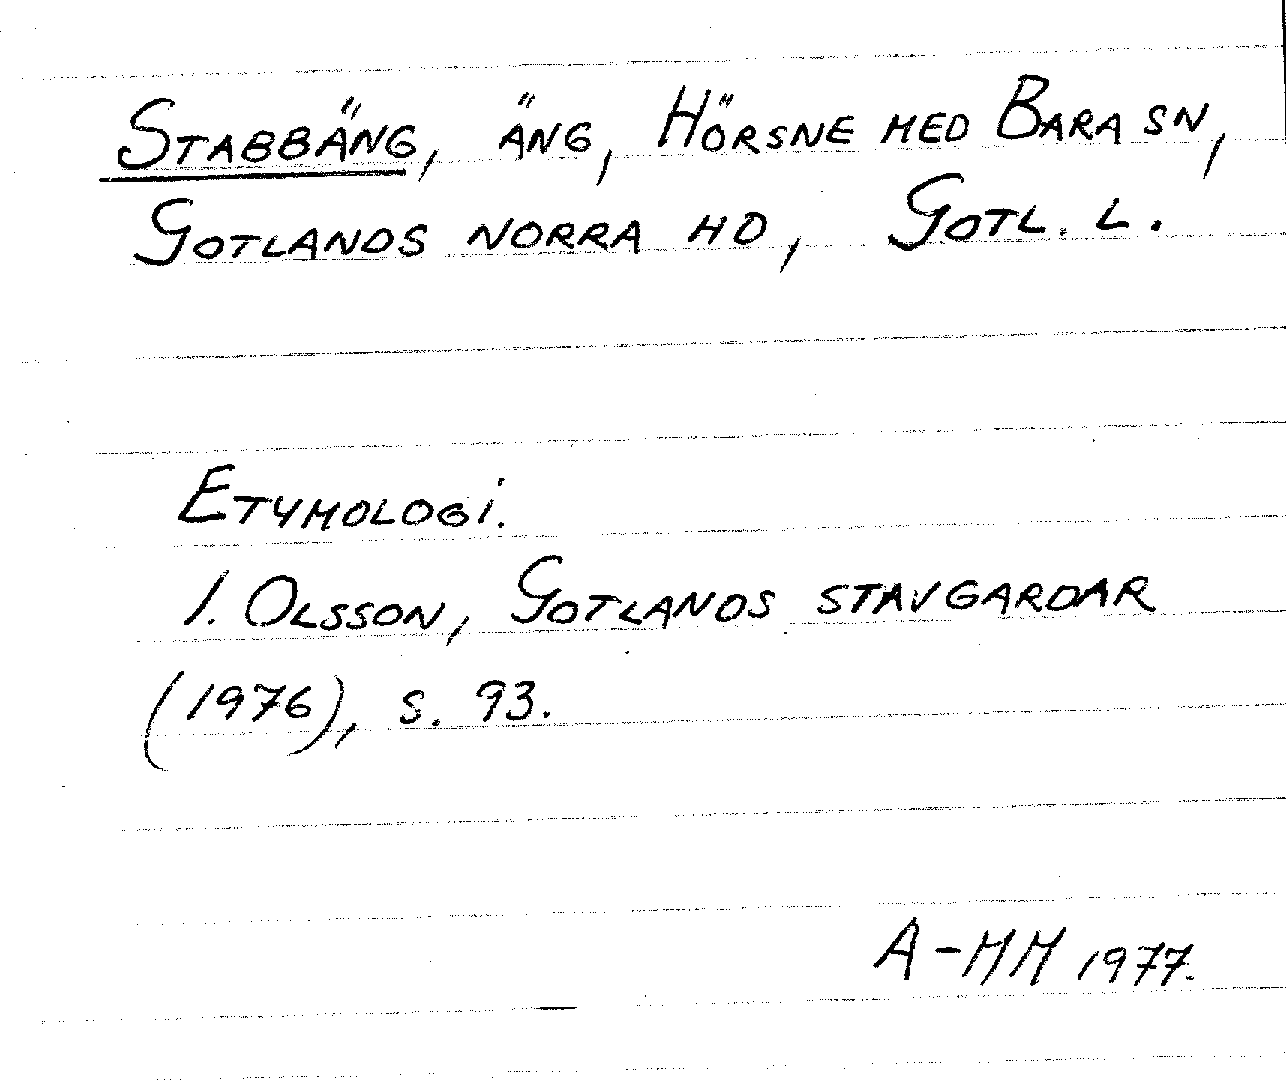 STABBÄNG, ÄNG, HÖRSNE MED BARA SN,
GOTLANDS NORRA HD, GOTL. L.
ETYMOLOGI.
I. OLSSON, GOTLANDS STAVGARDAR
(1976), S. 93.
A-MM 1977.